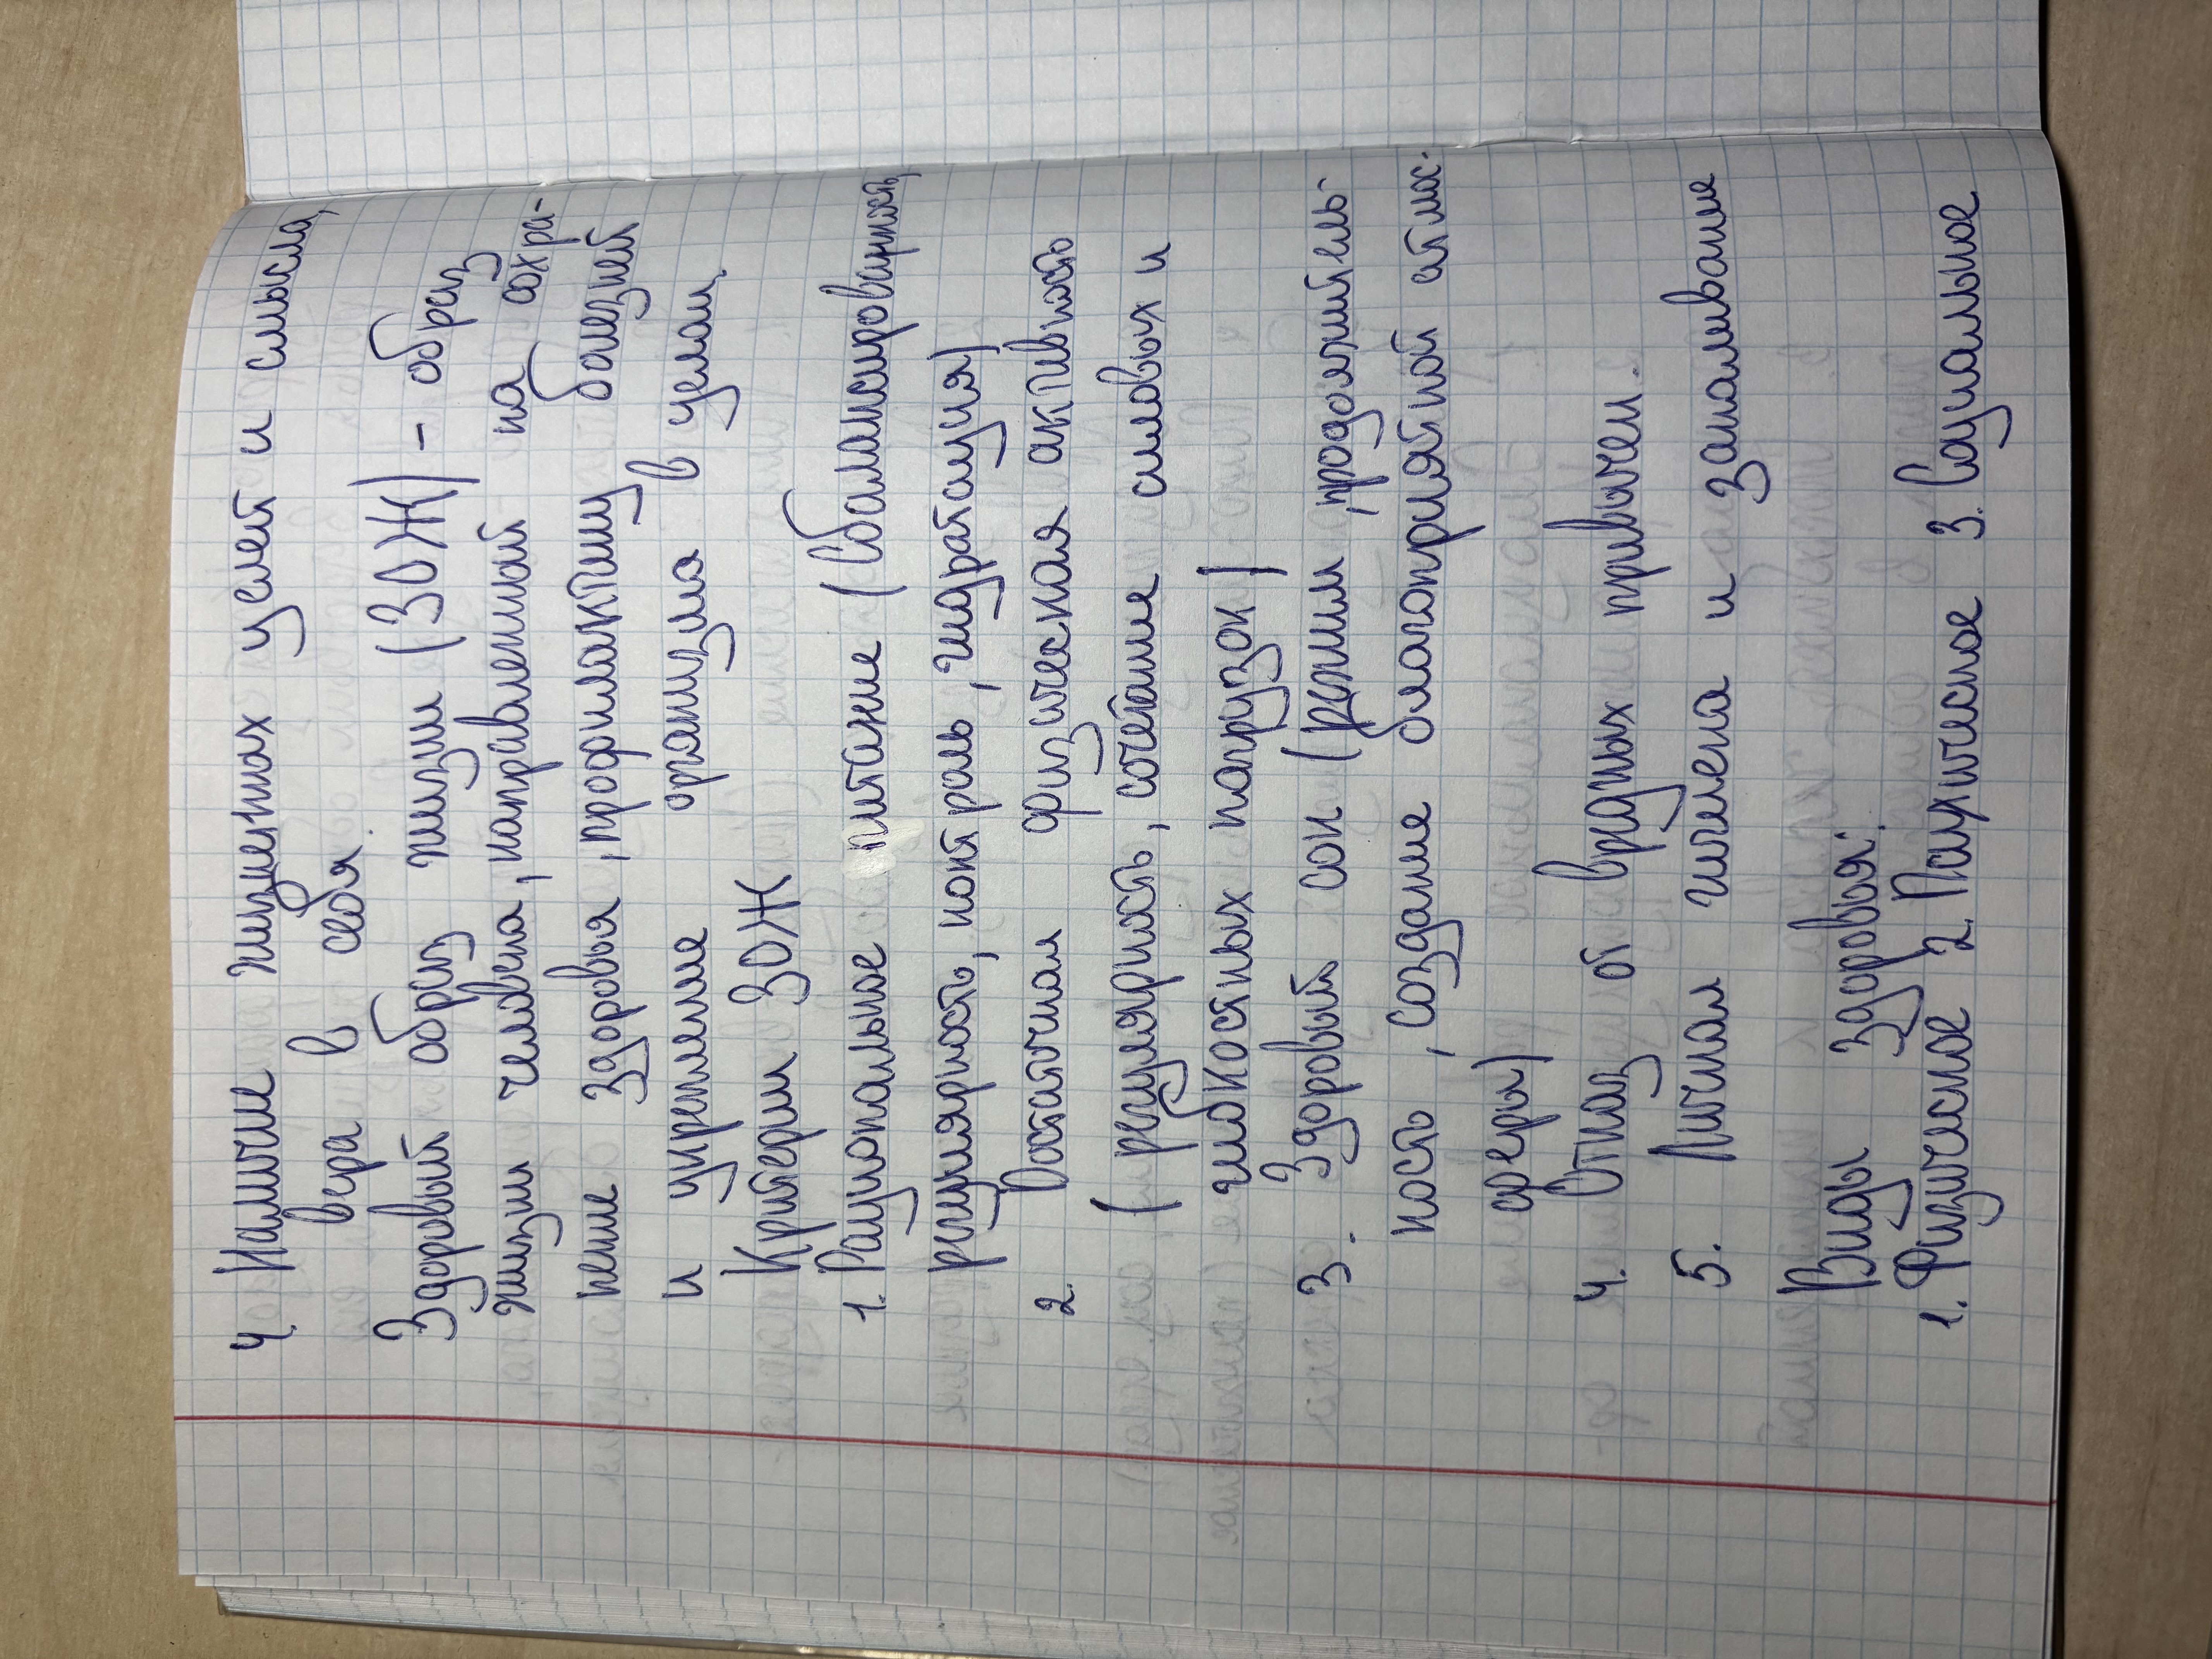 4. Наличие жизненных целей и смысла,
вера в себя.
Здоровый образ жизни (ЗОЖ) - образ
жизни человека, направленный на сохра-
нение здоровья, профилактику болезней
и укрепление организма в целом.
Критерии ЗОЖ
1. Рациональное питание (сбалансированность,
регулярность, контроль, гидратация)
2. Достаточная физическая активность
(регулярность, сочетание силовых и
гибкостных нагрузок)
3. Здоровый сон (режим, продолжитель-
ность, создание благоприятной атмос-
феры)
4. Отказ от вредных привычек.
5. Личная гигиена и закаливание
Виды здоровья:
1. Физическое 2. Психическое 3. Социальное